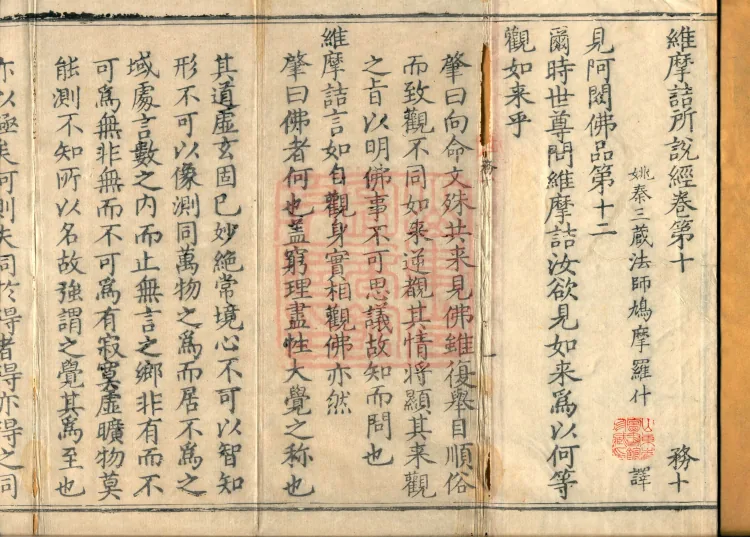 維摩詰所說經卷第十 務十
姚秦三藏法師鳩摩羅什 譯
見阿閦佛品第十二
爾時世尊問維摩詰汝欲見如来為以何等
觀如来乎
肇曰向命文殊共来見佛雖復舉目順俗
而致觀不同如来逆觀其情將顯其来觀
之旨以明佛事不可思議故知而問也
維摩詰言如自觀身實相觀佛亦然
肇曰佛者何也蓋窮理盡性大覺之稱也
其道虛玄固已妙絕常境心不可以智知
形不可以像測同萬物之為而居不為之
域處言數之内而止無言之鄉非有而不
可為無非無而不可為有寂寞虛曠物莫
能測不知所以名故強謂之覺其為至也
亦以極矣何則夫同於得者得亦得之同
務十